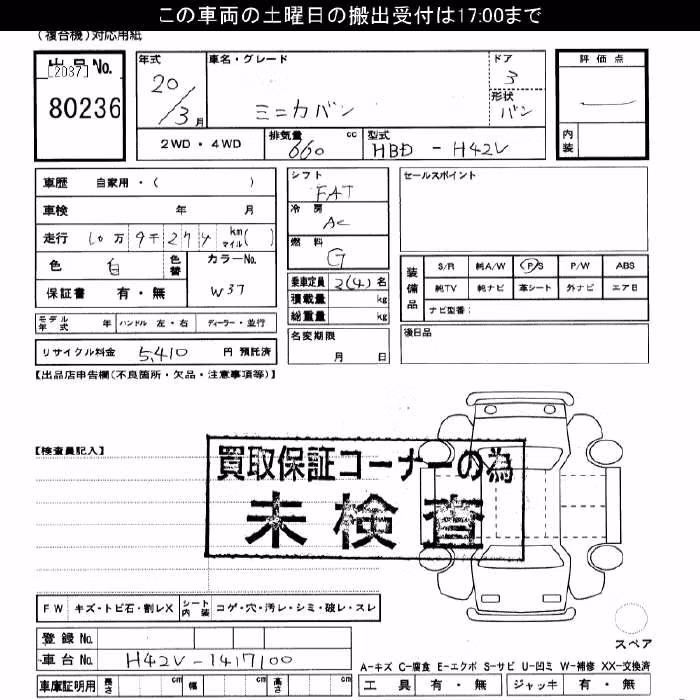 この車両の土曜日の搬出受付は17:00まで
(複合機)対応用紙
出品No.
[2037]
80236
年式
20/3月
車名・グレード
ミニカバン
ドア
3
形状
バン
評価点
内装
2WD・4WD
排気量 660 cc
型式 HBD - H42V
車歴 自家用・( )
車検 年 月
走行 10万9千274 km マイル( )
色 白 色替
カラーNo.
W37
保証書 有・無
シフト
FAT
冷房
AC
燃料
G
乗車定員 2(4)名
積載量 kg
総重量 kg
セールスポイント
装備品
S/R 純A/W P/S P/W ABS
純TV 純ナビ 革シート 外ナビ エアB
ナビ型番:
モデル年式 年 ハンドル 左・右 ディーラー・並行
名変期限
月 日
後日品
リサイクル料金 5,410 円 預託済
【出品店申告欄(不良箇所・欠品・注意事項等)】
【検査員記入】
買取保証コーナーの為
未検査
FW キズ・トビ石・割レX シート内装 コゲ・穴・汚レ・シミ・破レ・スレ
登録No.
車台No. H42V-1417100
車庫証明用 長さ cm 幅 cm 高さ cm
スペア
A-キズ C-腐食 E-エクボ S-サビ U-凹ミ W-補修 XX-交換済
工具 有・無 ジャッキ 有・無